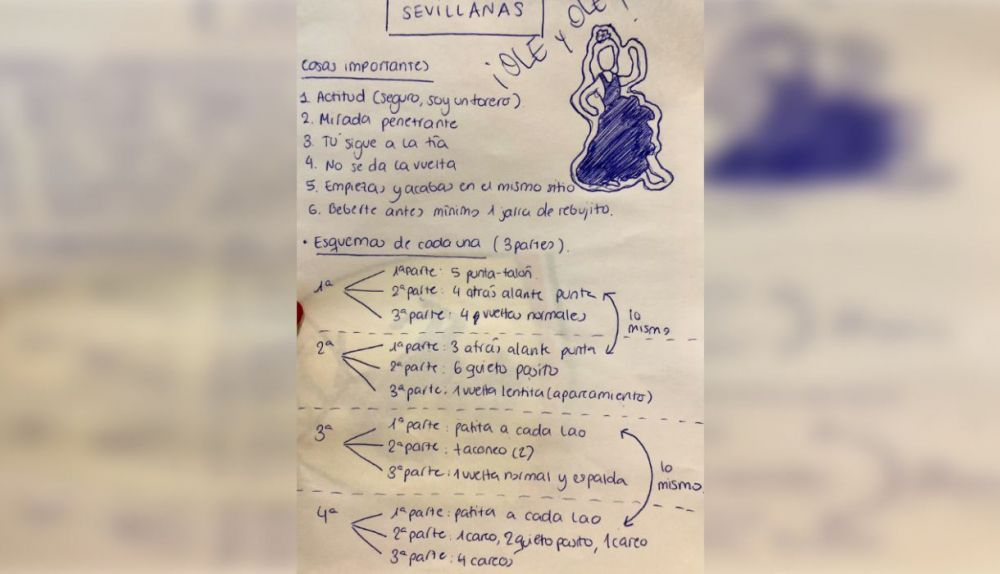 SEVILLANAS
¡OLE Y OLE!
Cosas importantes
1. Actitud (seguro, soy un torero)
2. Mirada penetrante
3. TÚ sigue a la tía
4. No se da la vuelta
5. Empiezas y acabas en el mismo sitio
6. Beberte antes mínimo 1 jarra de rebujito.
• Esquemas de cada una (3 partes).
1ª
1ª parte: 5 punta-talón.
2ª parte: 4 atrás alante punta
3ª parte: 4 vueltas normales
lo mismo
2ª
1ª parte: 3 atrás alante punta
2ª parte: 6 quieto pasito
3ª parte: 1 vuelta lentita (aparcamiento)
3ª
1ª parte: patita a cada lao
2ª parte: taconeo (2)
3ª parte: 1 vuelta normal y espalda
lo mismo
4ª
1ª parte: patita a cada lao
2ª parte: 1 careo, 2 quieto pasito, 1 careo
3ª parte: 4 careos